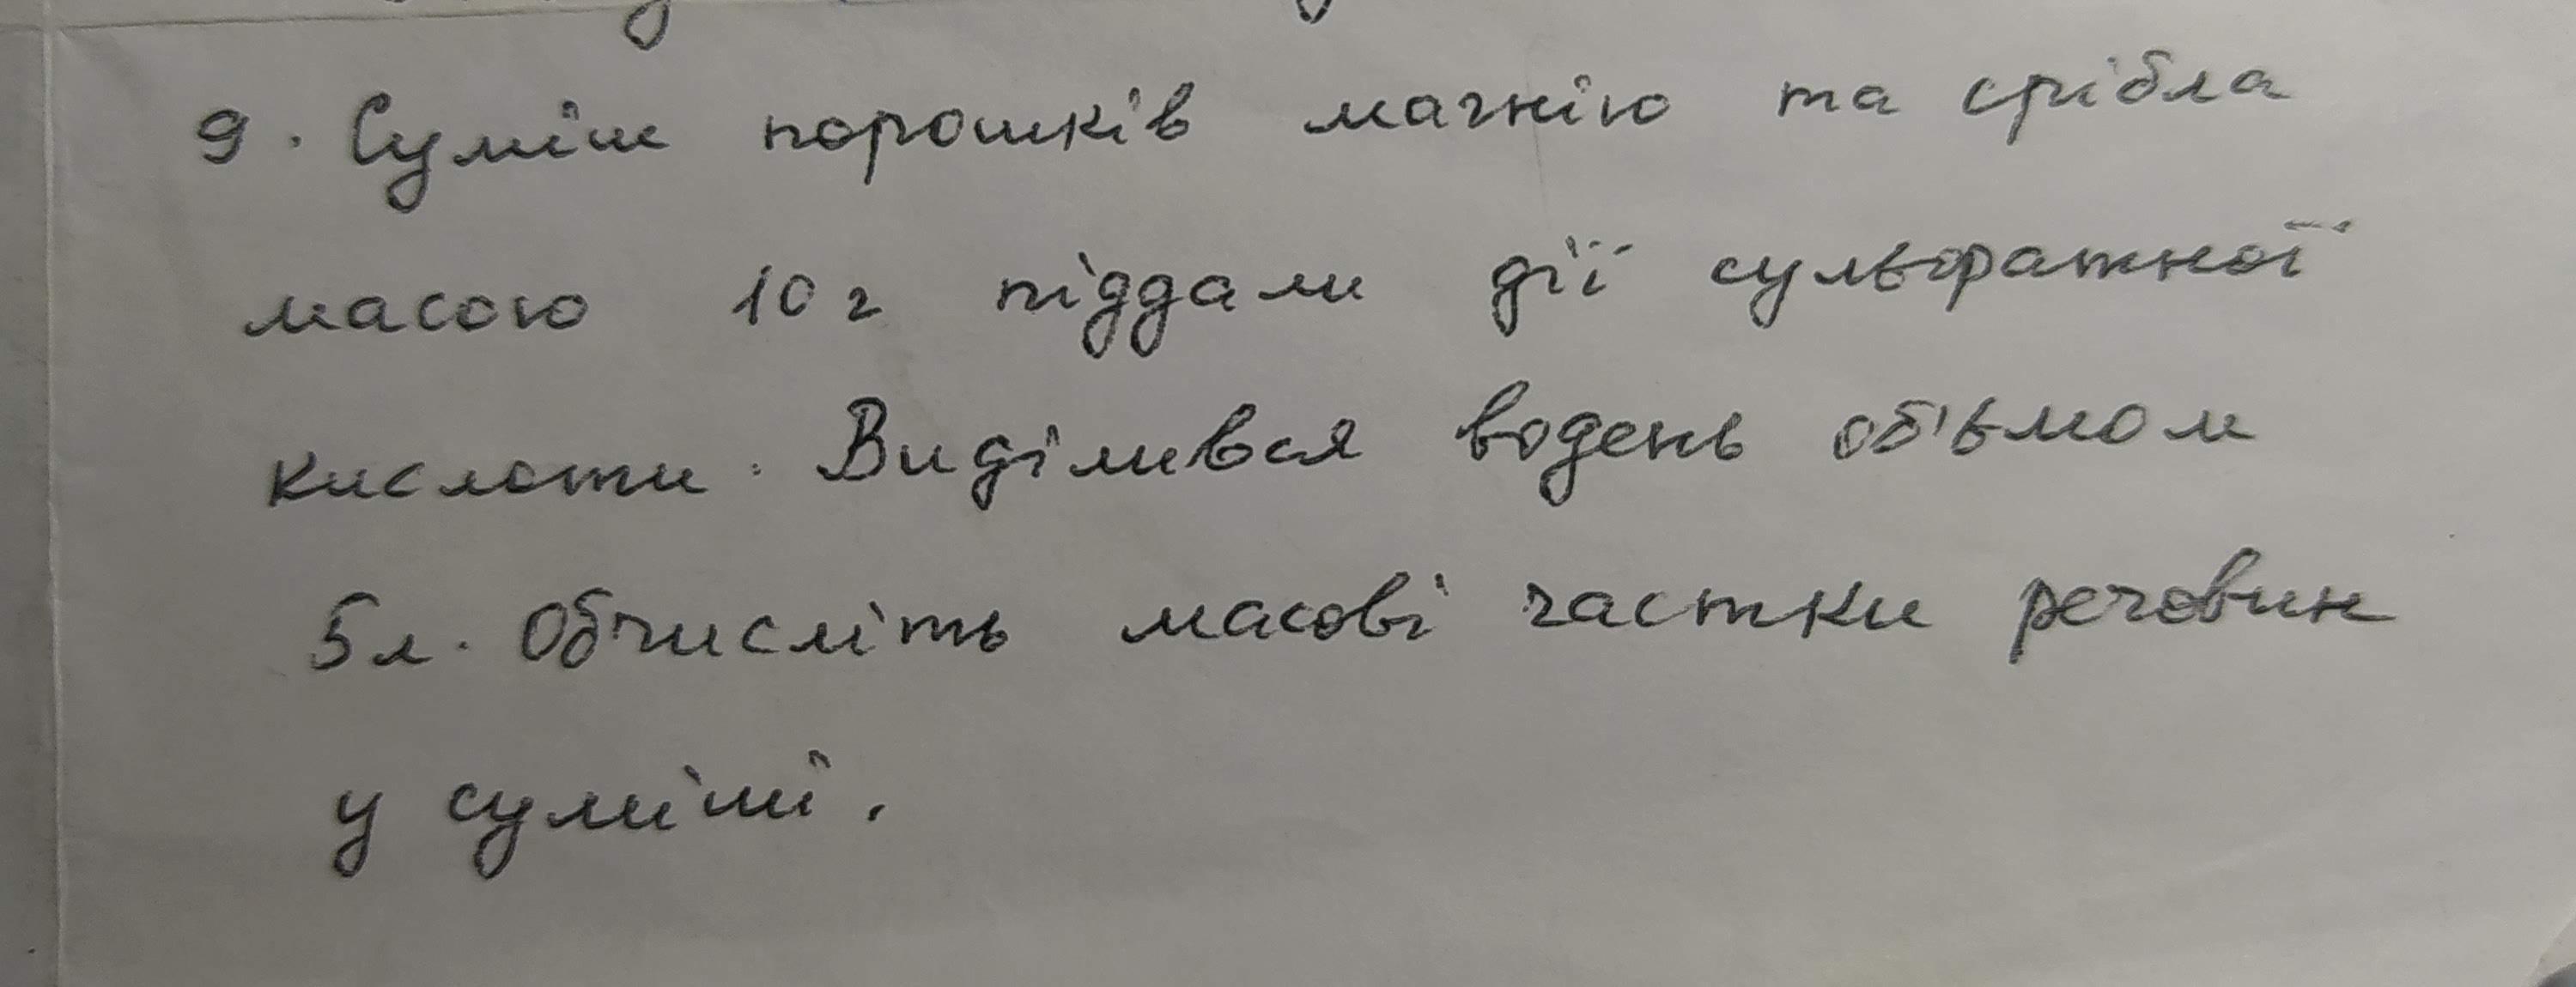 9. Суміш порошків магнію та срібла
масою 10 г піддали дії сульфатної
кислоти. Виділився водень об'ємом
5л. Обчисліть масові частки речовин
у суміші.